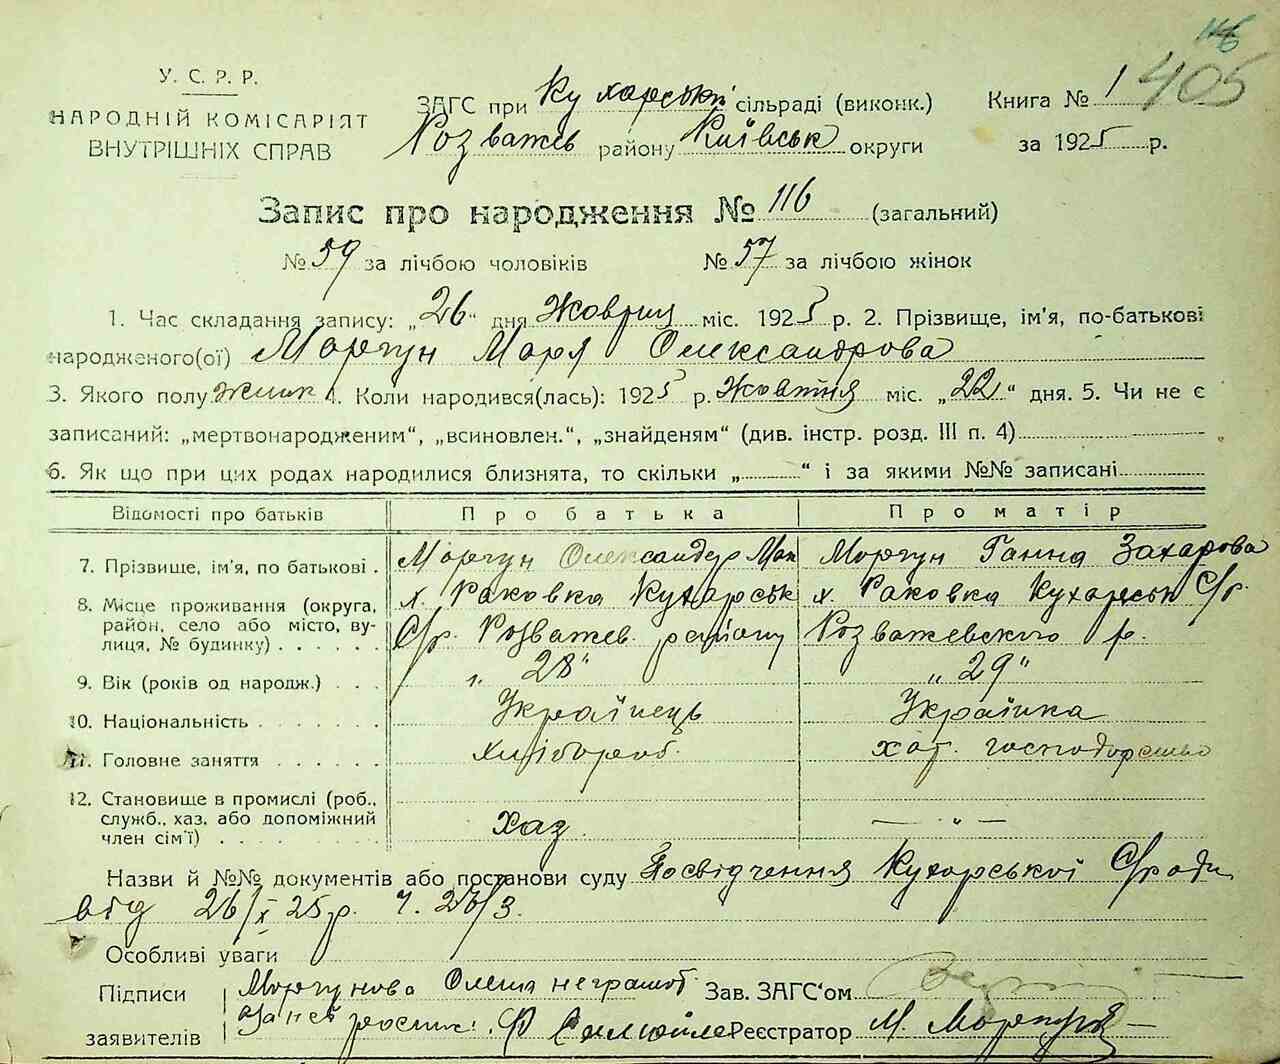 116
405
У. С. Р. Р.
НАРОДНІЙ КОМІСАРІЯТ
ВНУТРІШНІХ СПРАВ
ЗАГС при Кухарській сільраді (виконк.)
Розважев району Київськ округи
Книга № 1
за 1925 р.
Запис про народження № 116 (загальний)
№ 59 за лічбою чоловіків № 57 за лічбою жінок
1. Час складання запису: „26“ дня Жовтня міс. 1925 р. 2. Прізвище, ім'я, по-батькові
народженого(ої) Моргун Марія Олександрова
3. Якого полу жіноч 4. Коли народився(лась): 1925 р. Жовтня міс. „22“ дня. 5. Чи не є
записаний: „мертвонародженим“, „всиновлен.“, „знайденям“ (див. інстр. розд. III п. 4)
6. Як що при цих родах народилися близнята, то скільки „ “ і за якими №№ записані
Відомості про батьків Про батька Про матір
7. Прізвище, ім'я, по батькові . Моргун Олександер Мак Моргун Ганна Захарова
8. Місце проживання (округа, район, село або місто, вулиця, № будинку) х. Раковка Кухарськ С/р. Розважев. району х. Раковка Кухарськ С/р. Розважевского р.
9. Вік (років од народж.) „28“ „29“
10. Національність Українець Українка
11. Головне заняття Хлібороб. хат. господарство
12. Становище в промислі (роб., служб., хаз. або допоміжний член сім'ї) Хаз. — „ —
Назви й №№ документів або постанови суду Посвідчення Кухарської С/ради
від 26/X 25р. ч. 26/3.
Особливі уваги
Підписи Моргунова Олена неграмот. Зав. ЗАГС'ом
заявителів За неї роспис. Реєстратор М. Моргун